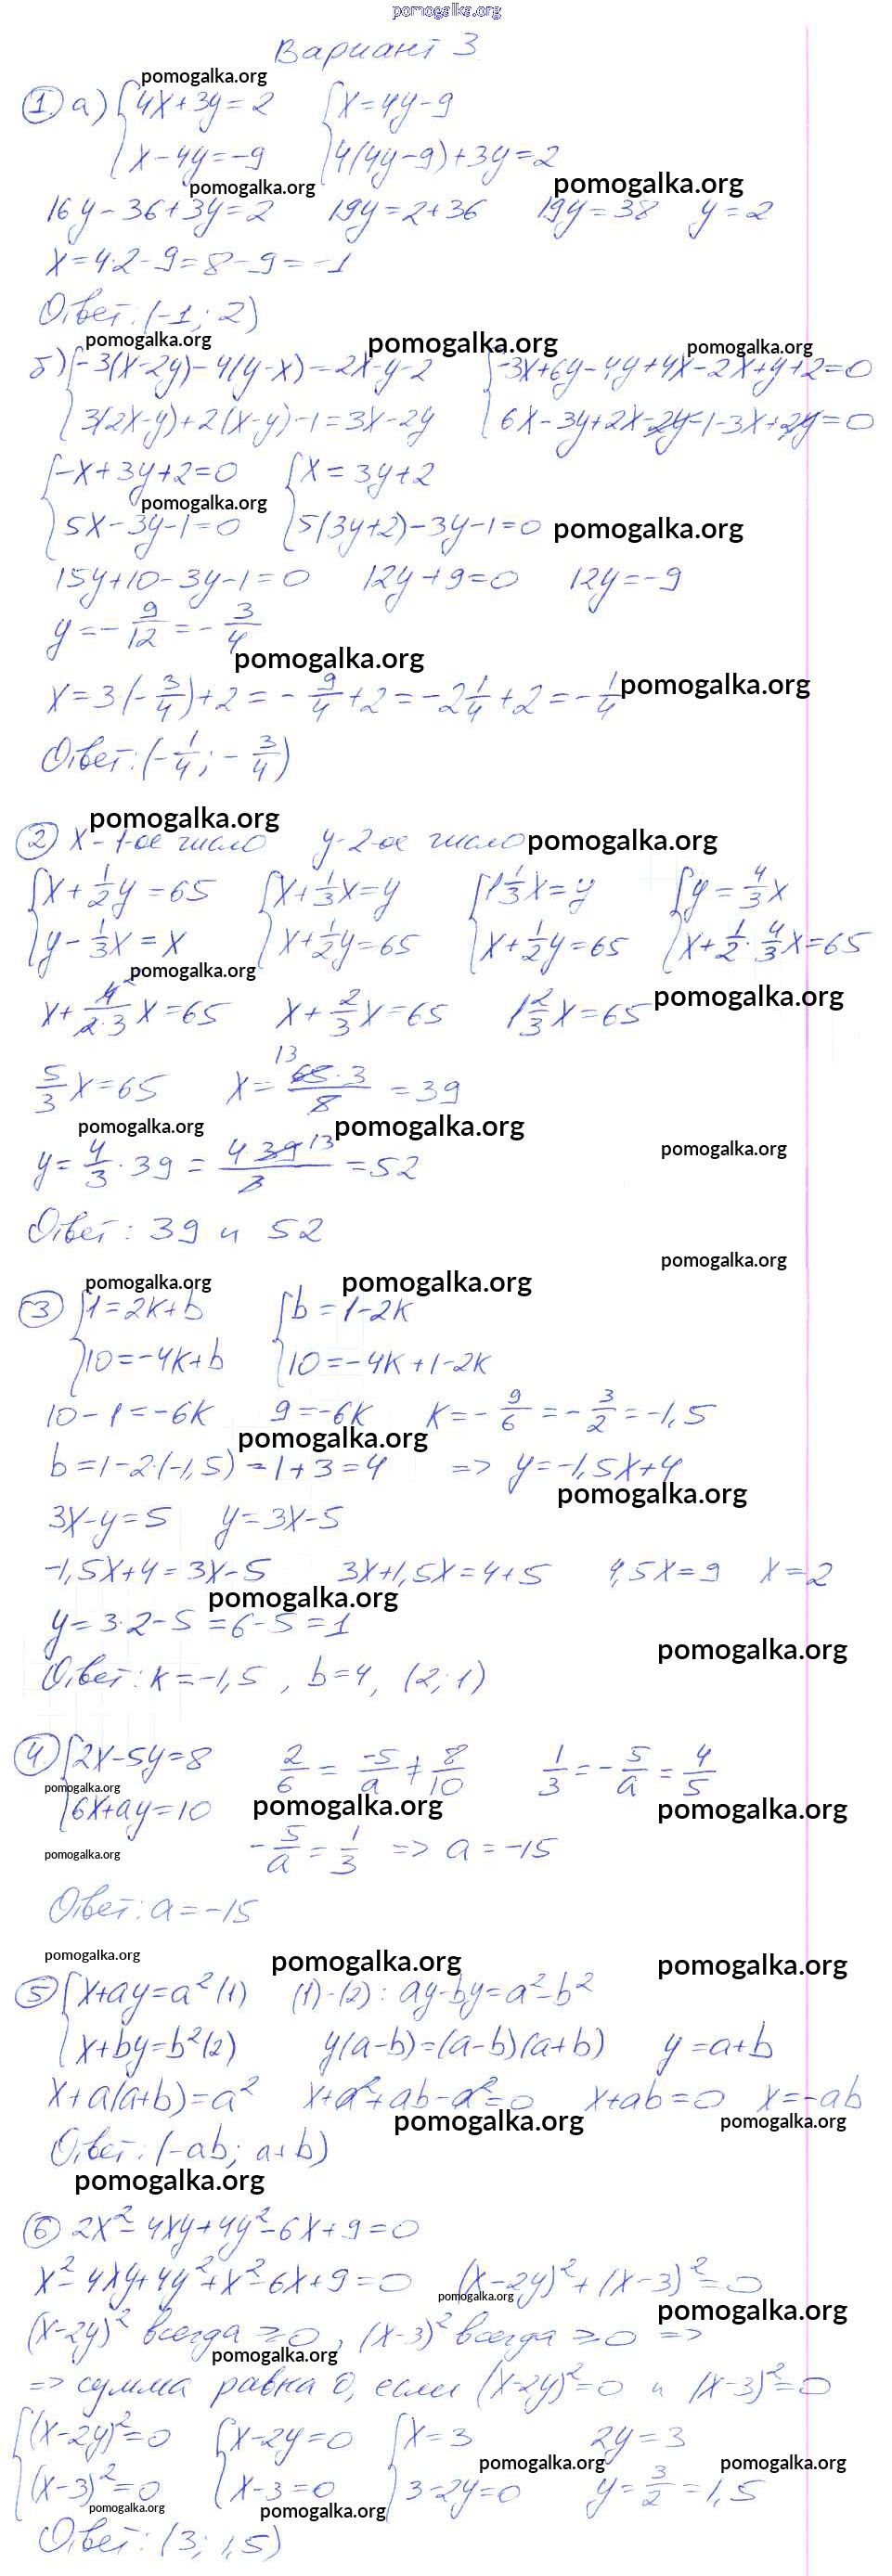 pomogalka.org
Вариант 3
pomogalka.org
① а) {4x+3y=2 {x=4y-9
x-4y=-9 4(4y-9)+3y=2
pomogalka.org pomogalka.org
16y-36+3y=2 19y=2+36 19y=38 y=2
x=4·2-9=8-9=-1
Ответ: (-1; 2)
pomogalka.org pomogalka.org pomogalka.org
б) {-3(x-2y)-4(y-x)=2x-y-2 {-3x+6y-4y+4x-2x+y+2=0
3(2x-y)+2(x-y)-1=3x-2y 6x-3y+2x-2y-1-3x+2y=0
{-x+3y+2=0 {x=3y+2
pomogalka.org
5x-3y-1=0 5(3y+2)-3y-1=0 pomogalka.org
15y+10-3y-1=0 12y+9=0 12y=-9
y=-9/12=-3/4
pomogalka.org
x=3·(-3/4)+2=-9/4+2=-2 1/4+2=-1/4 pomogalka.org
Ответ: (-1/4; -3/4)
pomogalka.org
② x-1-ое число y-2-ое число pomogalka.org
{x+1/2y=65 {x+1/3x=y {1 1/3x=y {y=4/3x
y-1/3x=x x+1/2y=65 x+1/2y=65 x+1/2·4/3x=65
pomogalka.org
x+4²/2·3x=65 x+2/3x=65 1 2/3x=65 pomogalka.org
5/3x=65 x=13 65·3/8=39
pomogalka.org pomogalka.org
y=4/3·39=4 39 13/3=52 pomogalka.org
Ответ: 39 и 52
pomogalka.org
pomogalka.org pomogalka.org
③ {1=2k+b {b=1-2k
10=-4k+b 10=-4k+1-2k
10-1=-6k 9=-6k k=-9/6=-3/2=-1,5
pomogalka.org
b=1-2·(-1,5)=1+3=4 => y=-1,5x+4
pomogalka.org
3x-y=5 y=3x-5
-1,5x+4=3x-5 3x+1,5x=4+5 4,5x=9 x=2
pomogalka.org
y=3·2-5=6-5=1
pomogalka.org
Ответ: k=-1,5, b=4, (2; 1)
④ {2x-5y=8 2/6=-5/a≠8/10 1/3=-5/a=4/5
pomogalka.org
6x+ay=10 pomogalka.org pomogalka.org
-5/a=1/3 => a=-15
pomogalka.org
Ответ: a=-15
pomogalka.org pomogalka.org pomogalka.org
⑤ {x+ay=a² (1) (1)-(2): ay-by=a²-b²
x+by=b² (2) y(a-b)=(a-b)(a+b) y=a+b
x+a(a+b)=a² x+a²+ab-a²=0 x+ab=0 x=-ab
pomogalka.org pomogalka.org
Ответ: (-ab; a+b)
pomogalka.org
⑥ 2x²-4xy+4y²-6x+9=0
x²-4xy+4y²+x²-6x+9=0 (x-2y)²+(x-3)²=0
pomogalka.org pomogalka.org
(x-2y)² всегда ≥0, (x-3)² всегда ≥0 =>
pomogalka.org
=> сумма равна 0, если (x-2y)²=0 и (x-3)²=0
{(x-2y)²=0 {x-2y=0 {x=3 2y=3
pomogalka.org pomogalka.org
(x-3)²=0 x-3=0 3-2y=0 y=3/2=1,5
pomogalka.org pomogalka.org
Ответ: (3; 1,5)